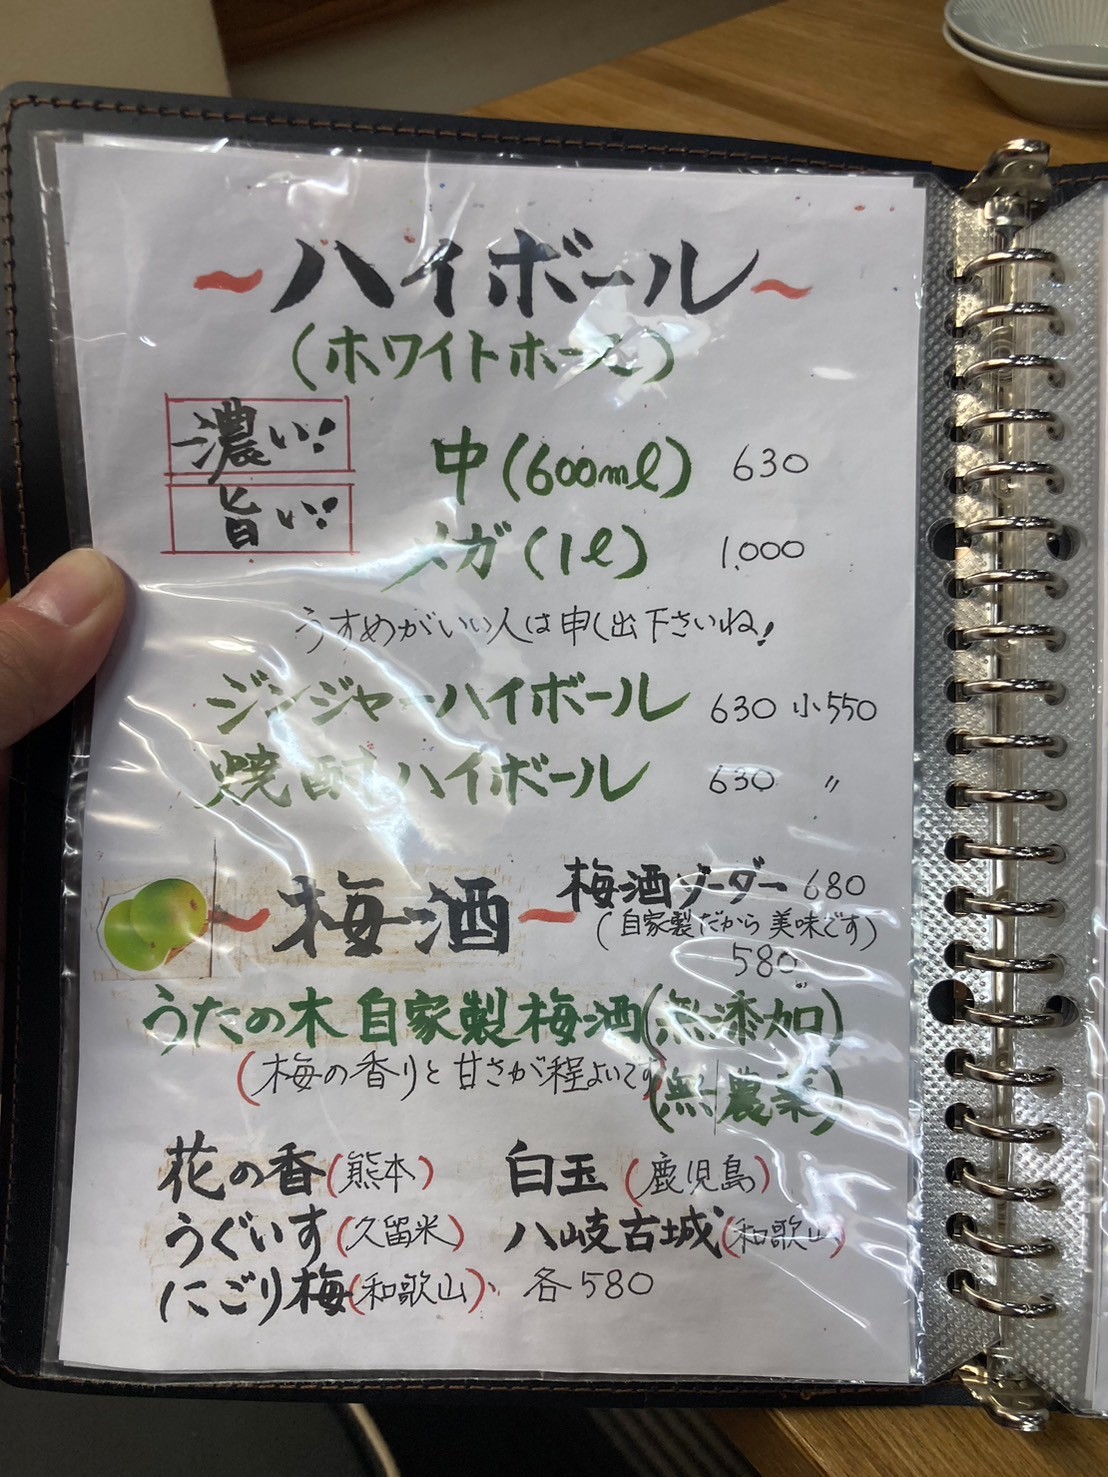 〜ハイボール〜
(ホワイトホース)
濃い!
旨い!
中(600ml) 630
メガ(1l) 1,000
うすめがいい人は申し出下さいね!
ジンジャーハイボール 630 小550
焼酎ハイボール 630 〃
〜梅酒〜
梅酒ソーダー 680
(自家製だから美味です)
580
うたの木自家製梅酒(無添加)
(梅の香りと甘さが程よいです)
(無農薬)
花の香(熊本) 白玉(鹿児島)
うぐいす(久留米) 八岐古城(和歌山)
にごり梅(和歌山) 各580